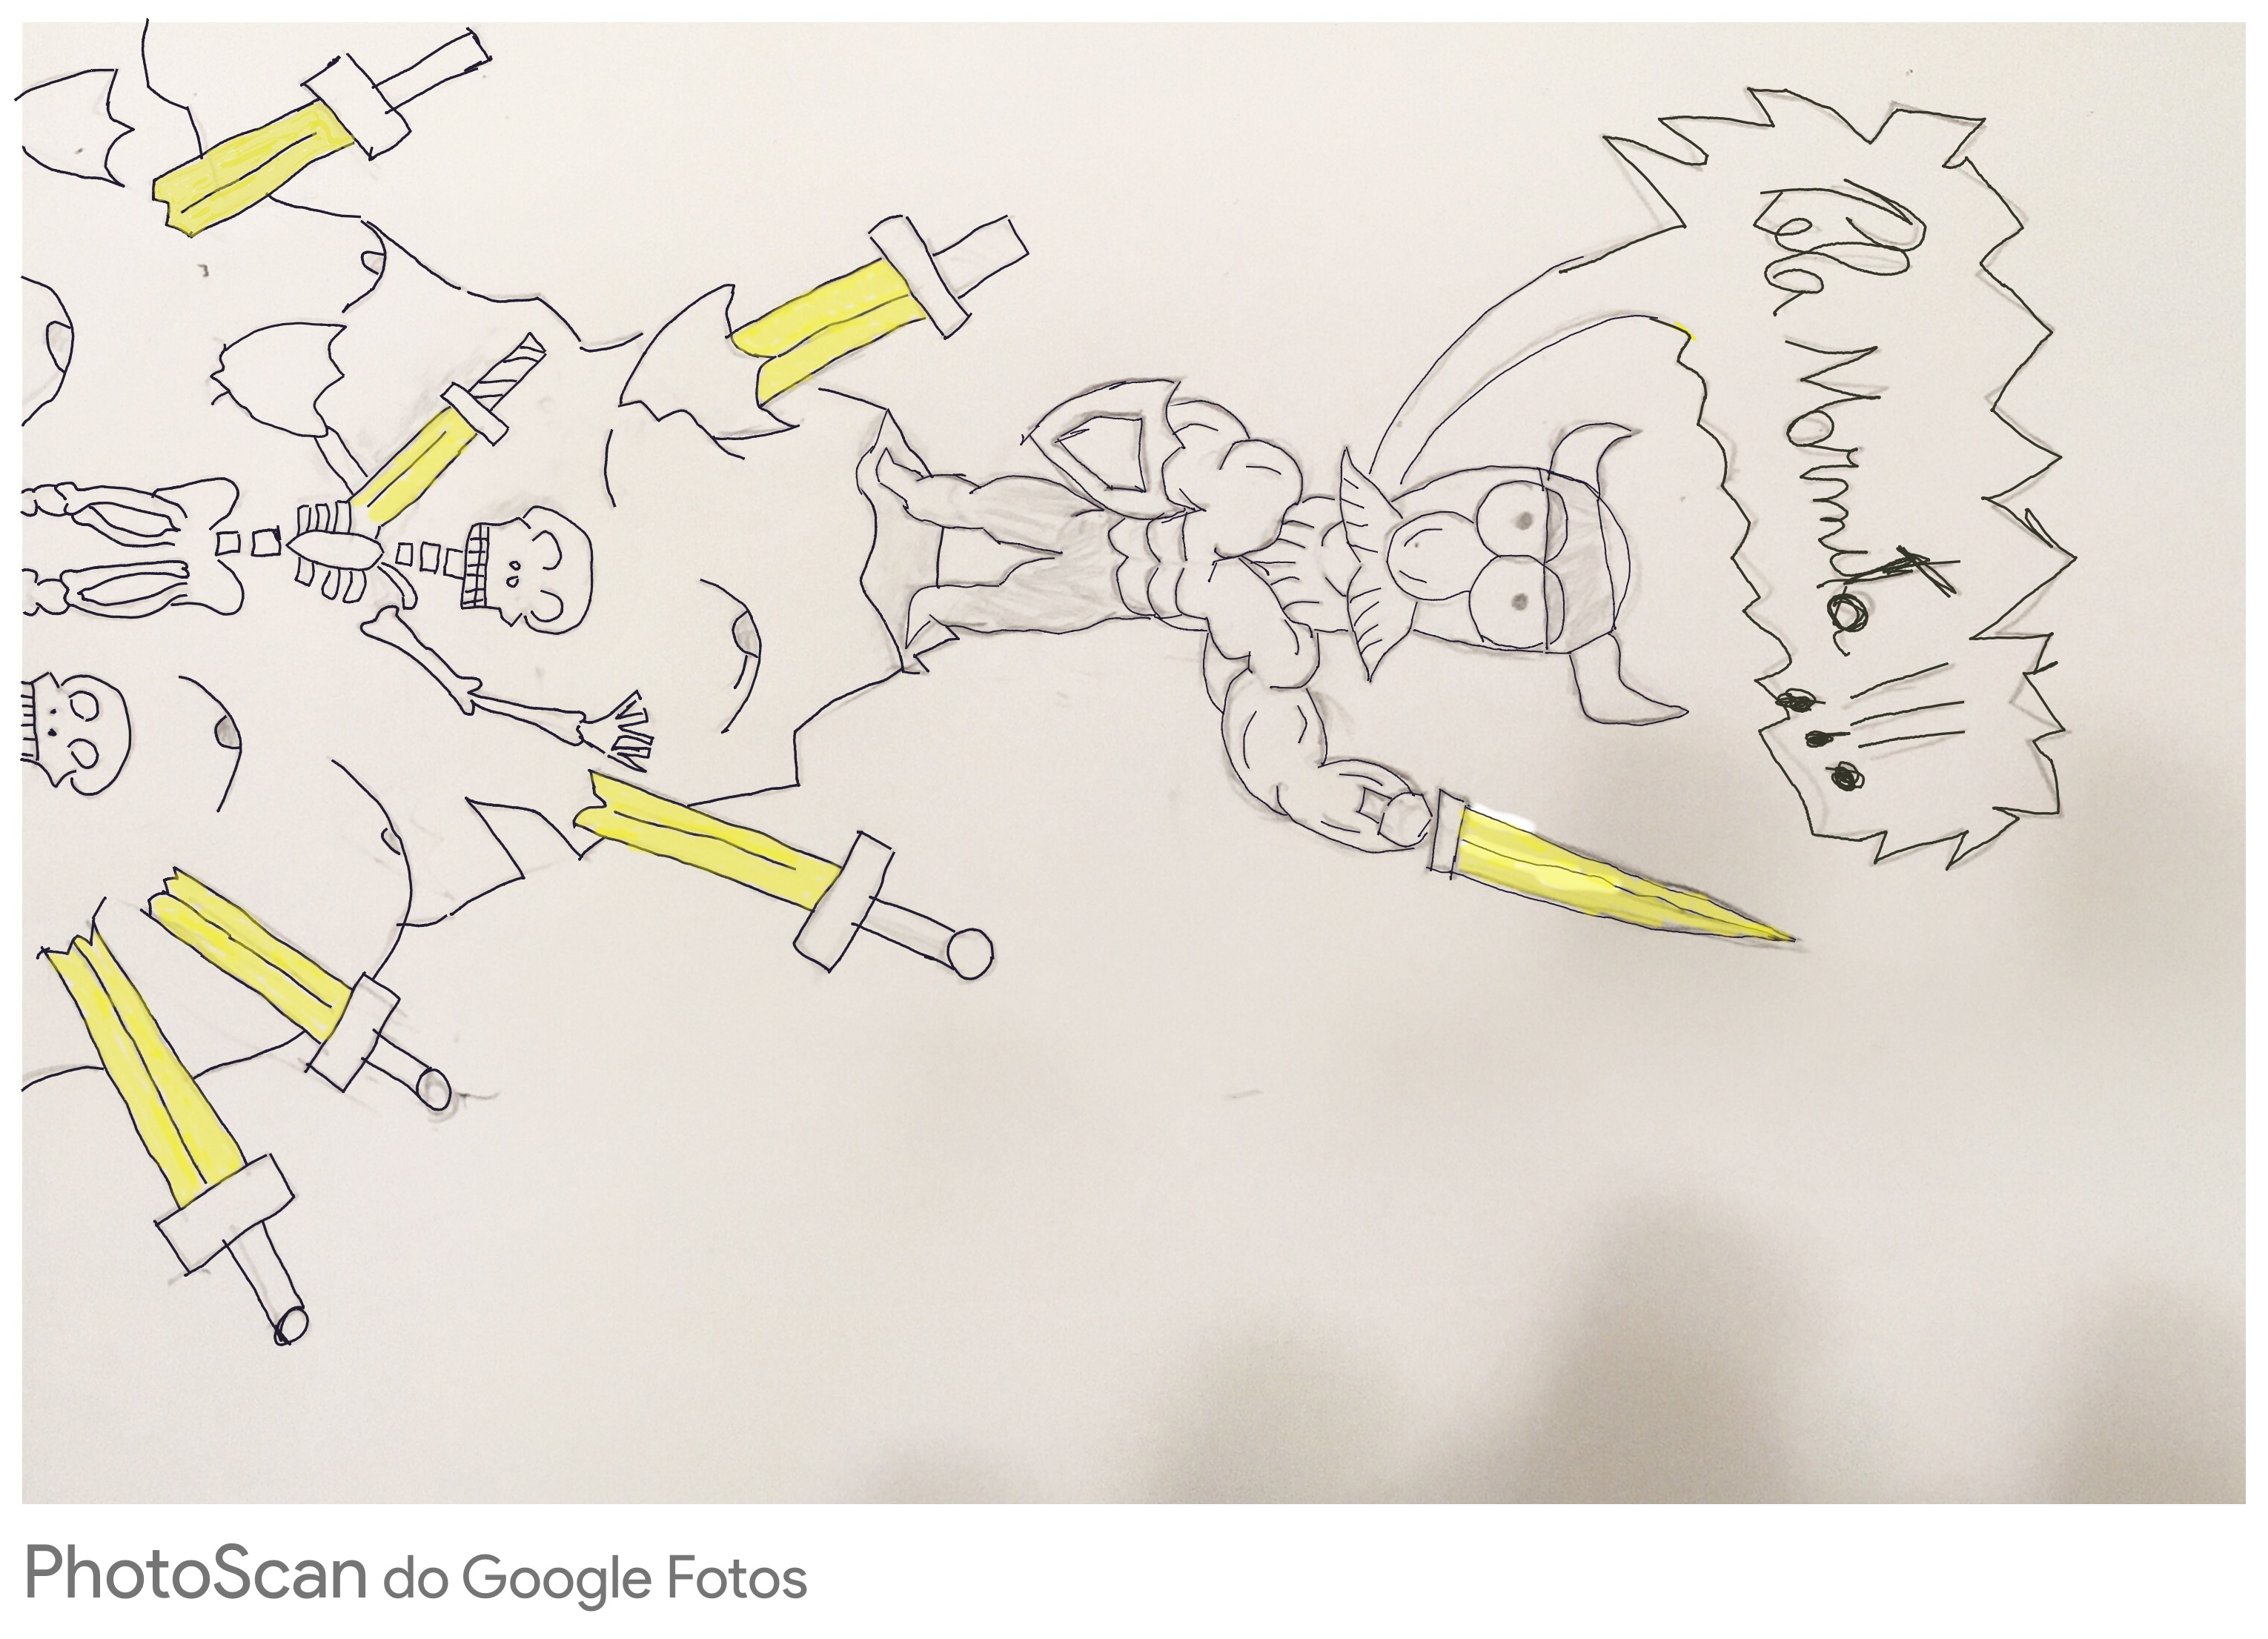 Pela Marmita!!!
PhotoScan do Google Fotos